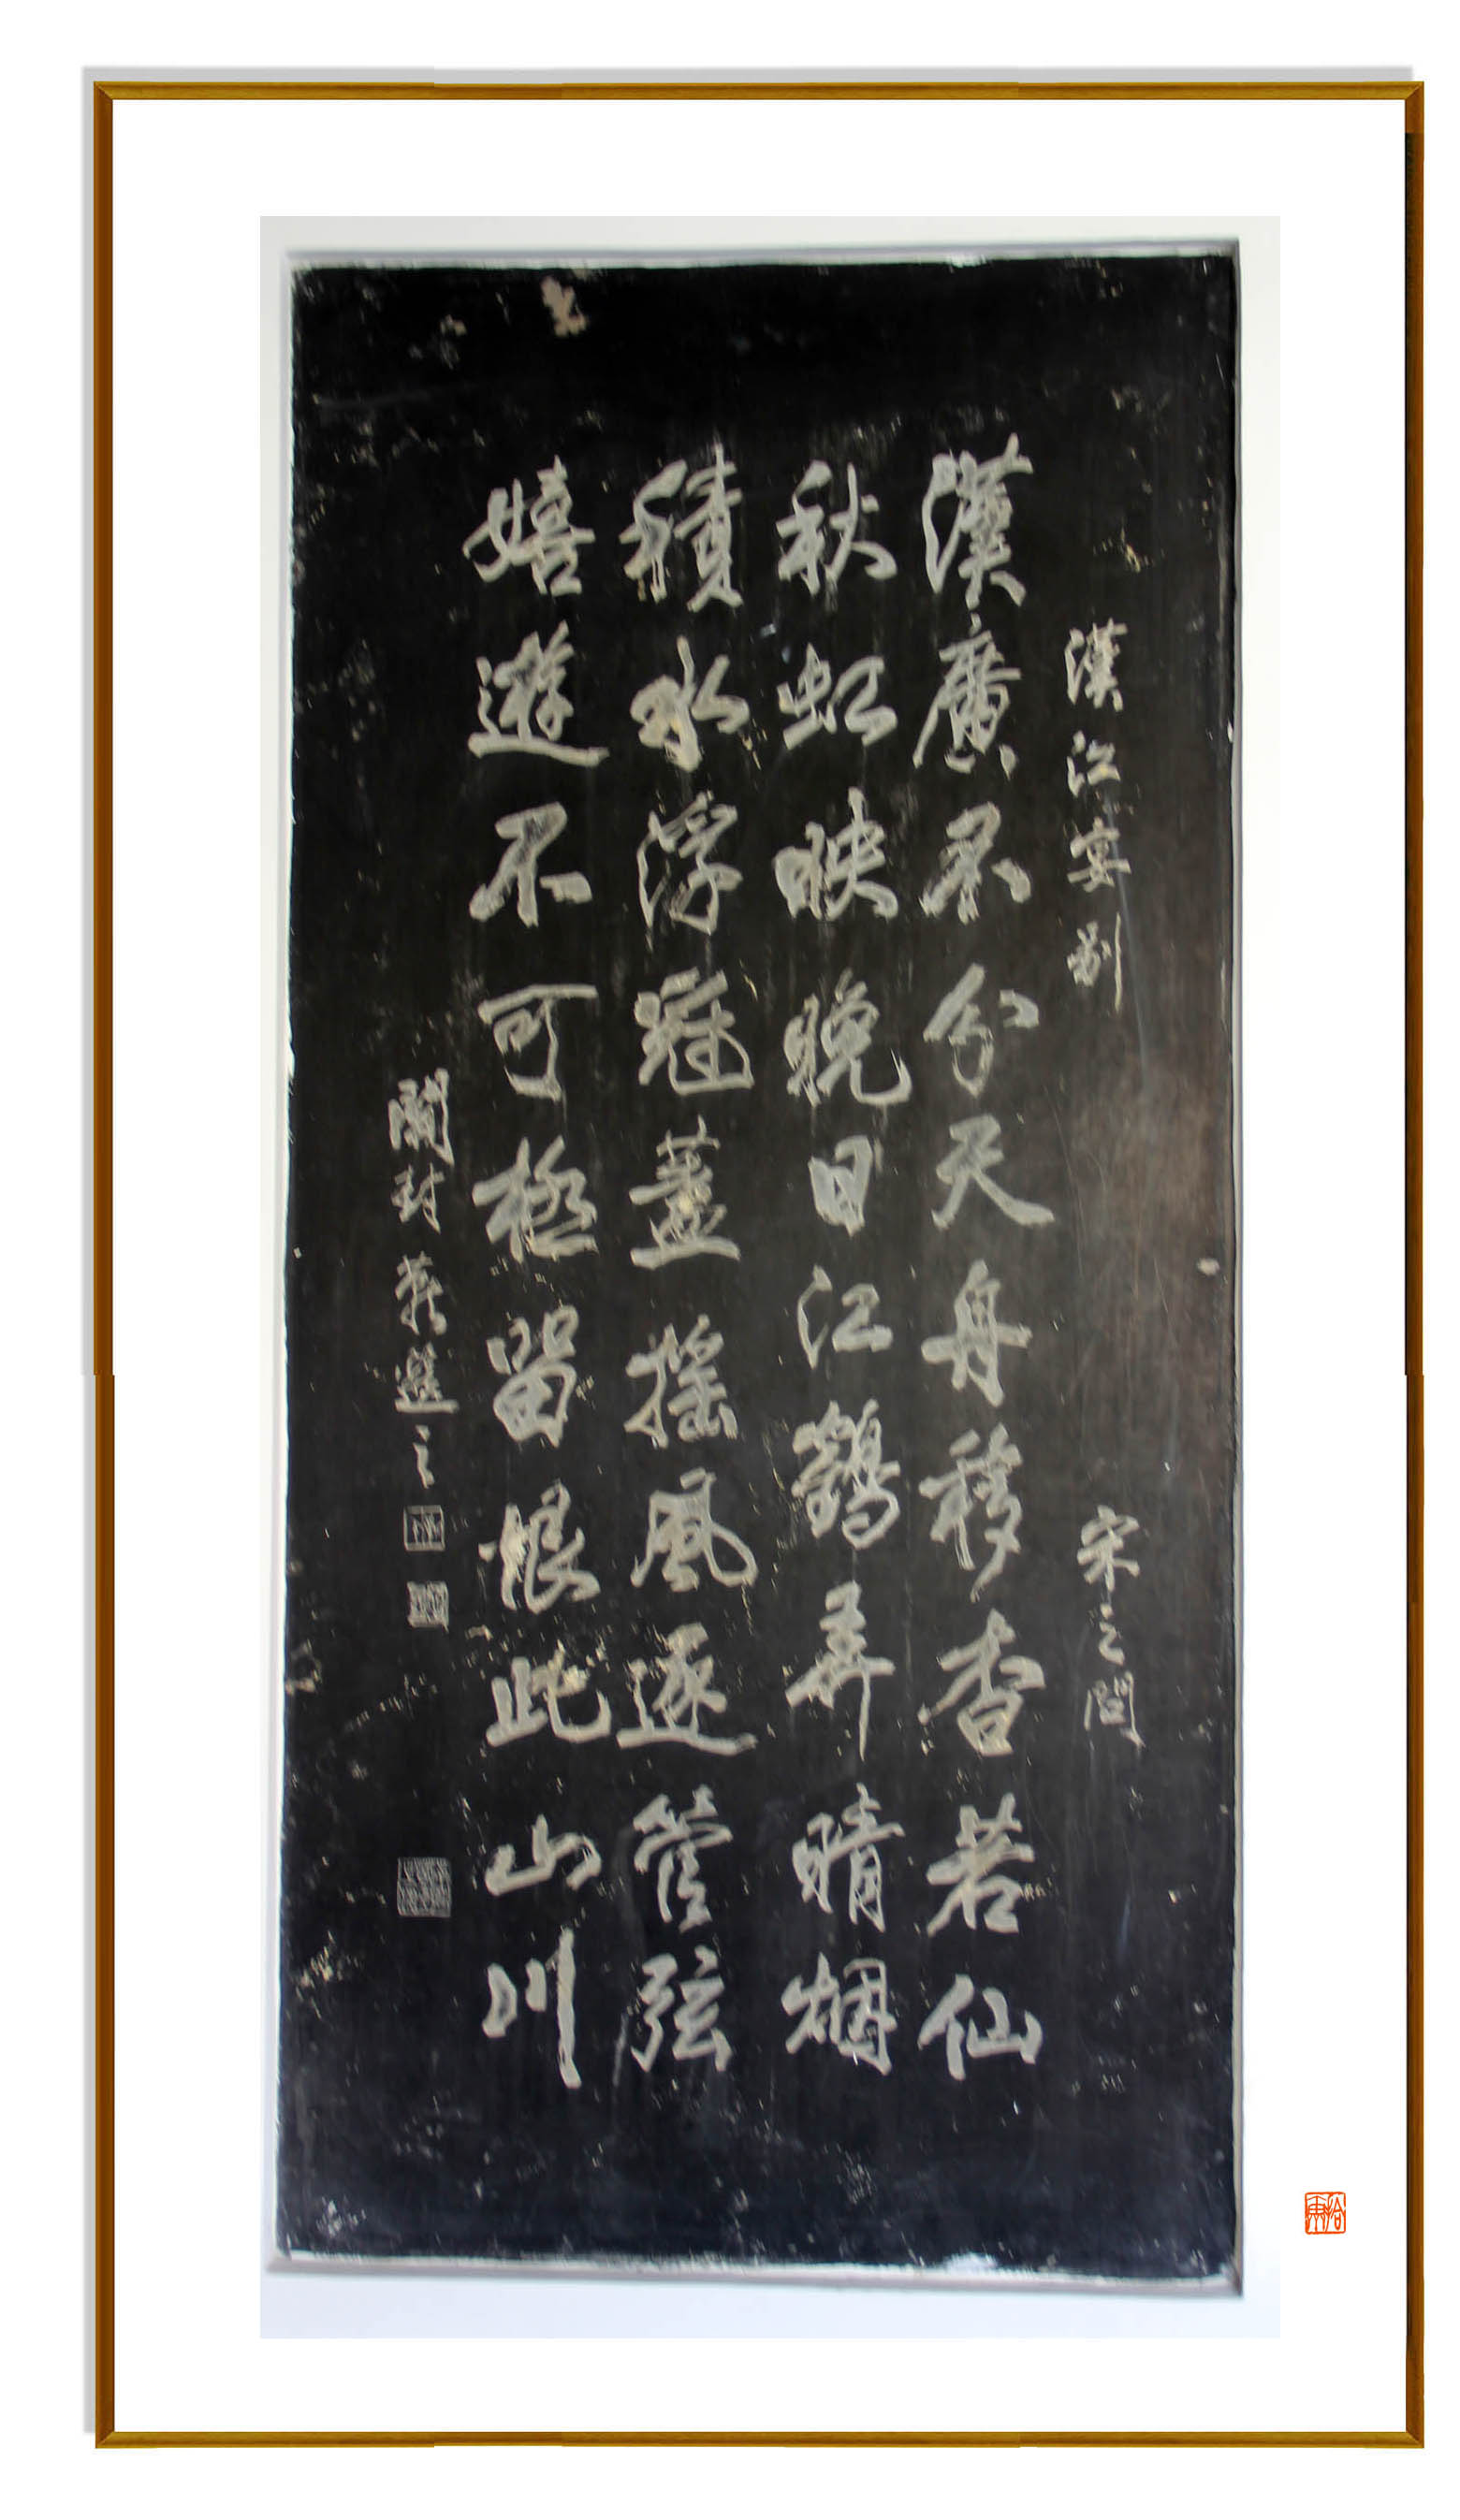 漢江宴別 宋之問
漢廣不分天舟移杳若仙
秋虹映晚日江鶴弄晴烟
積水浮冠蓋搖風逐管弦
嬉遊不可極留恨此山川
封 之